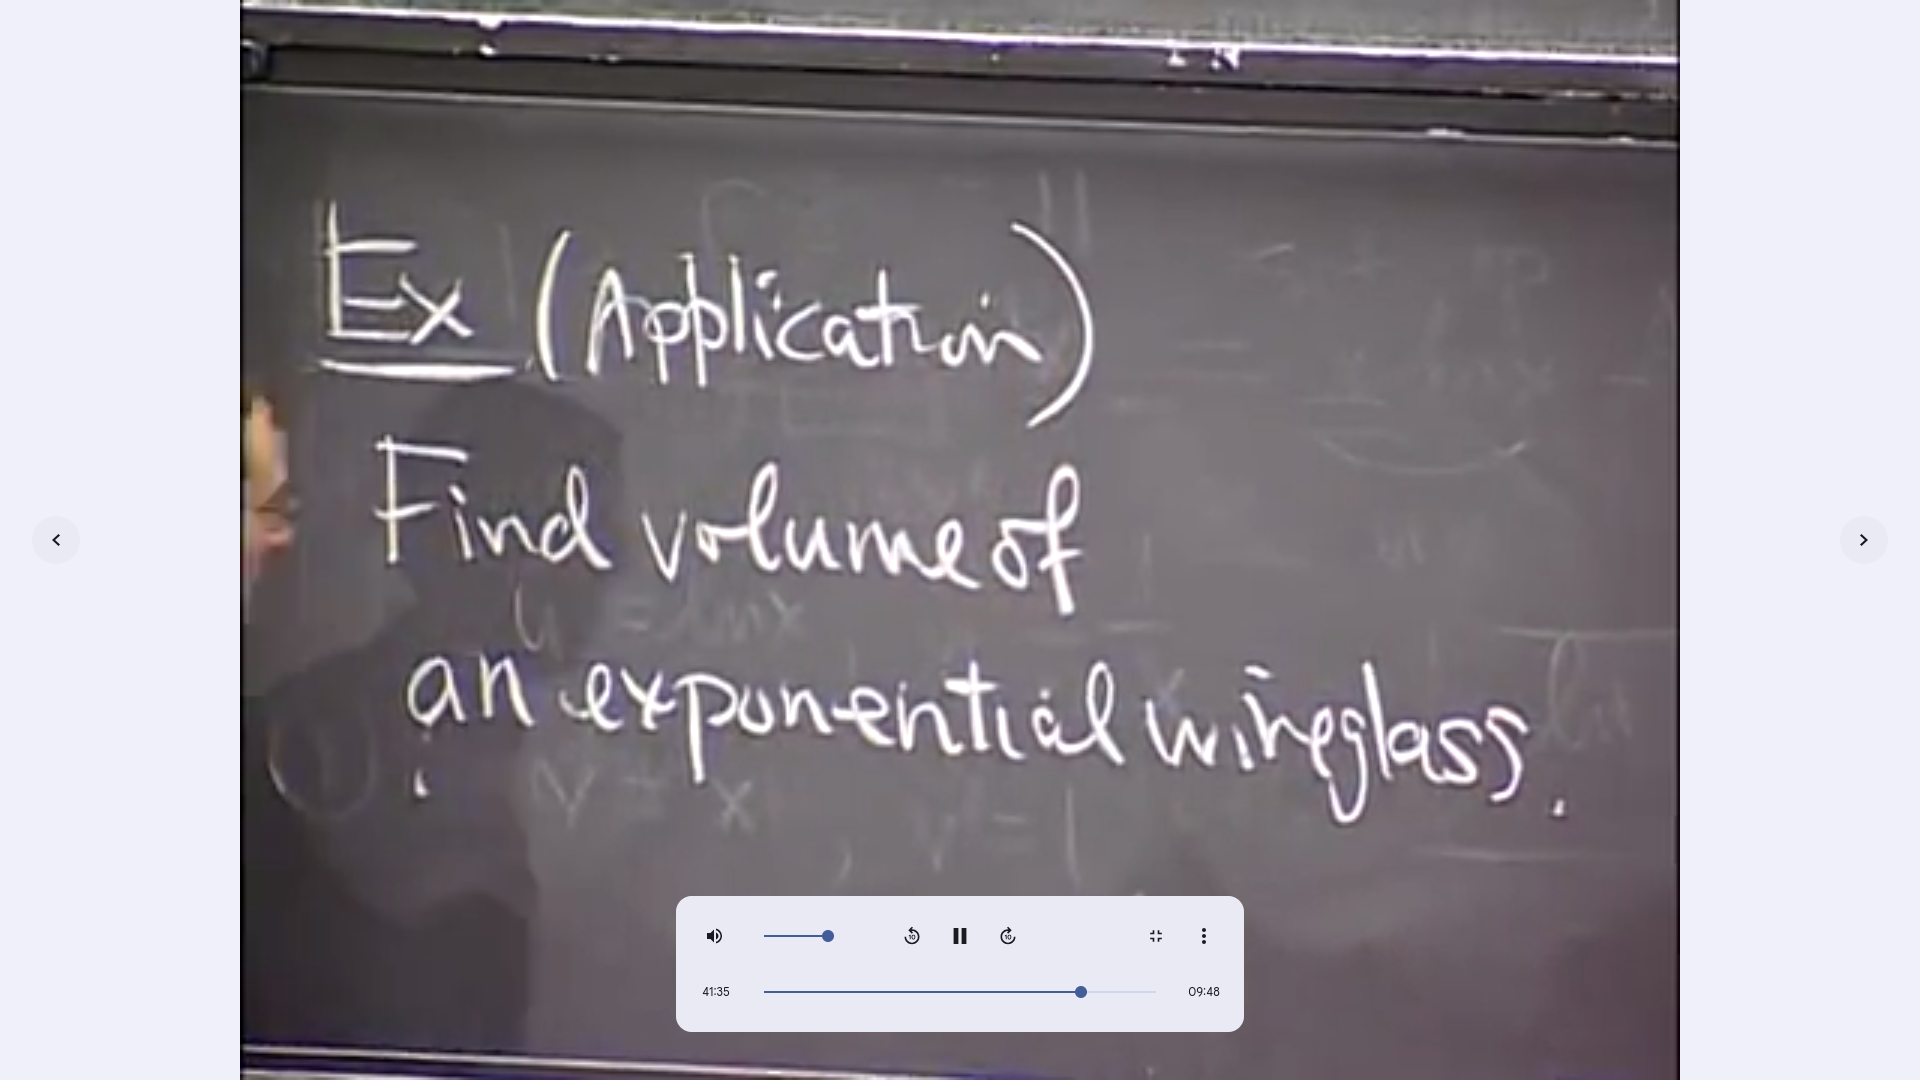 Ex (Application)
Find volume of
an exponential wineglass.
u = ln x
v = x, v' = 1
41:35
09:48